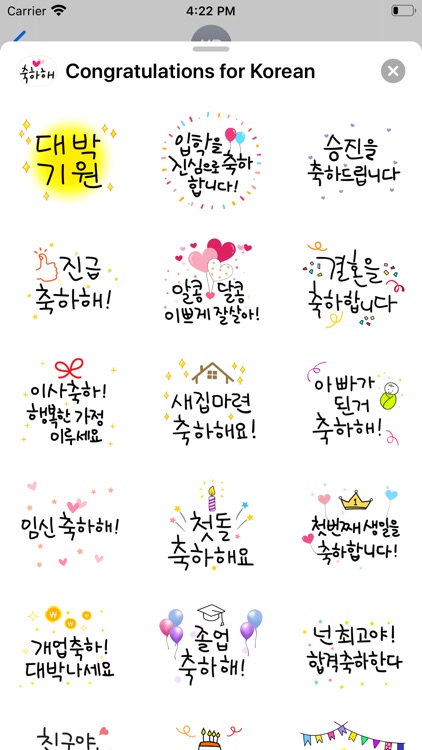 Carrier 4:22 PM
축하해 Congratulations for Korean
대박
기원
입학을
진심으로 축하
합니다!
승진을
축하드립니다
진급
축하해!
알콩 달콩
이쁘게 잘살아!
결혼을
축하합니다
이사축하!
행복한 가정
이루세요
새집마련
축하해요!
아빠가
된거
축하해!
임신 축하해!
첫돌
축하해요
1
첫번째 생일을
축하합니다!
₩ ₩ ₩
개업축하!
대박나세요
졸업
축하해!
넌 최고야!
합격축하한다
친구야,